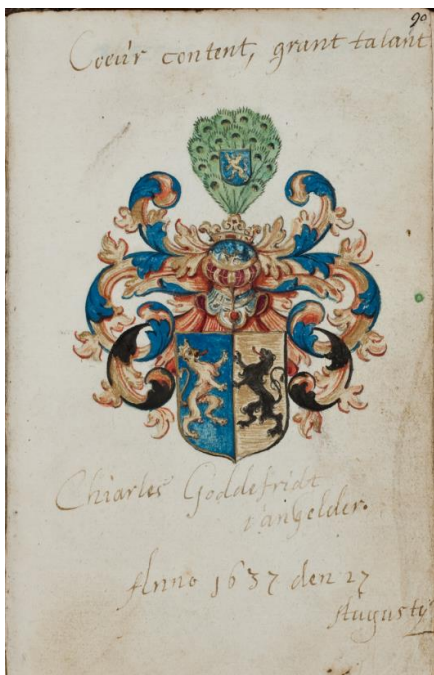 90
Coeur content, grant talant
Chiarles Goddefridt
vangelder.
Anno 1637 den 27
Augustij